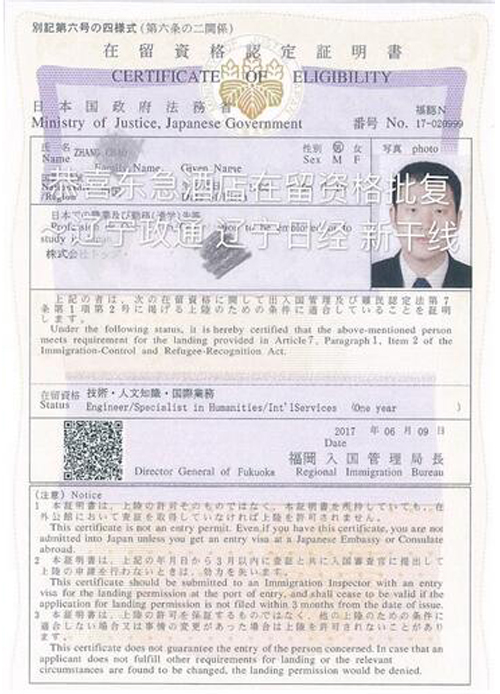 別記第六号の四様式(第六条の二関係)
在留資格認定証明書
CERTIFICATE OF ELIGIBILITY
日本国政府法務省
Ministry of Justice, Japanese Government
福認N
番号 No. 17-020999
氏名
Name ZHANG
Family Name Given Name
性別 男 女
Sex M F
写真 photo
恭喜东急酒店在留资格批复
~辽宁政通 辽宁日经 新干线
株式会社トップ
上記の者は、次の在留資格に関して出入国管理及び難民認定法第7
条第1項第2号に掲げる上陸のための条件に適合していることを証明
します。
Under the following status, it is hereby certified that the above-mentioned person
meets requirement for the landing provided in Article 7, Paragraph 1, Item 2 of the
Immigration-Control and Refugee-Recognition Act.
在留資格 技術・人文知識・国際業務
Status Engineer/Specialist in Humanities/Int'lServices (One year )
2017 年 06 月 09 日
Date
福岡入国管理局長
Director General of Fukuoka Regional Immigration Bureau
(注意) Notice
1 本証明書は、上陸の許可そのものではなく、本証明書を所持していても、在
外公館において査証を取得していなければ上陸を許可されません。
This certificate is not an entry permit. Even if you have this certificate, you are not
admitted into Japan unless you get an entry visa at a Japanese Embassy or Consulate
abroad.
2 本証明書は、上記の年月日から3月以内に査証と共に入国審査官に提出して
上陸の申請を行わないときは、効力を失います。
This certificate should be submitted to an Immigration Inspector with an entry
visa for the landing permission at the port of entry, and shall cease to be valid if the
application for landing permission is not filed within 3 months from the date of issue.
3 本証明書は、上陸の許可を保証するものではなく、他の上陸のための条件に
適合しない場合又は事情の変更があった場合は上陸を許可されないことがあり
ます。
This certificate does not guarantee the entry of the person concerned. In case that an
applicant does not fulfill other requirements for landing or the relevant
circumstances are found to be changed, the landing permission would be denied.